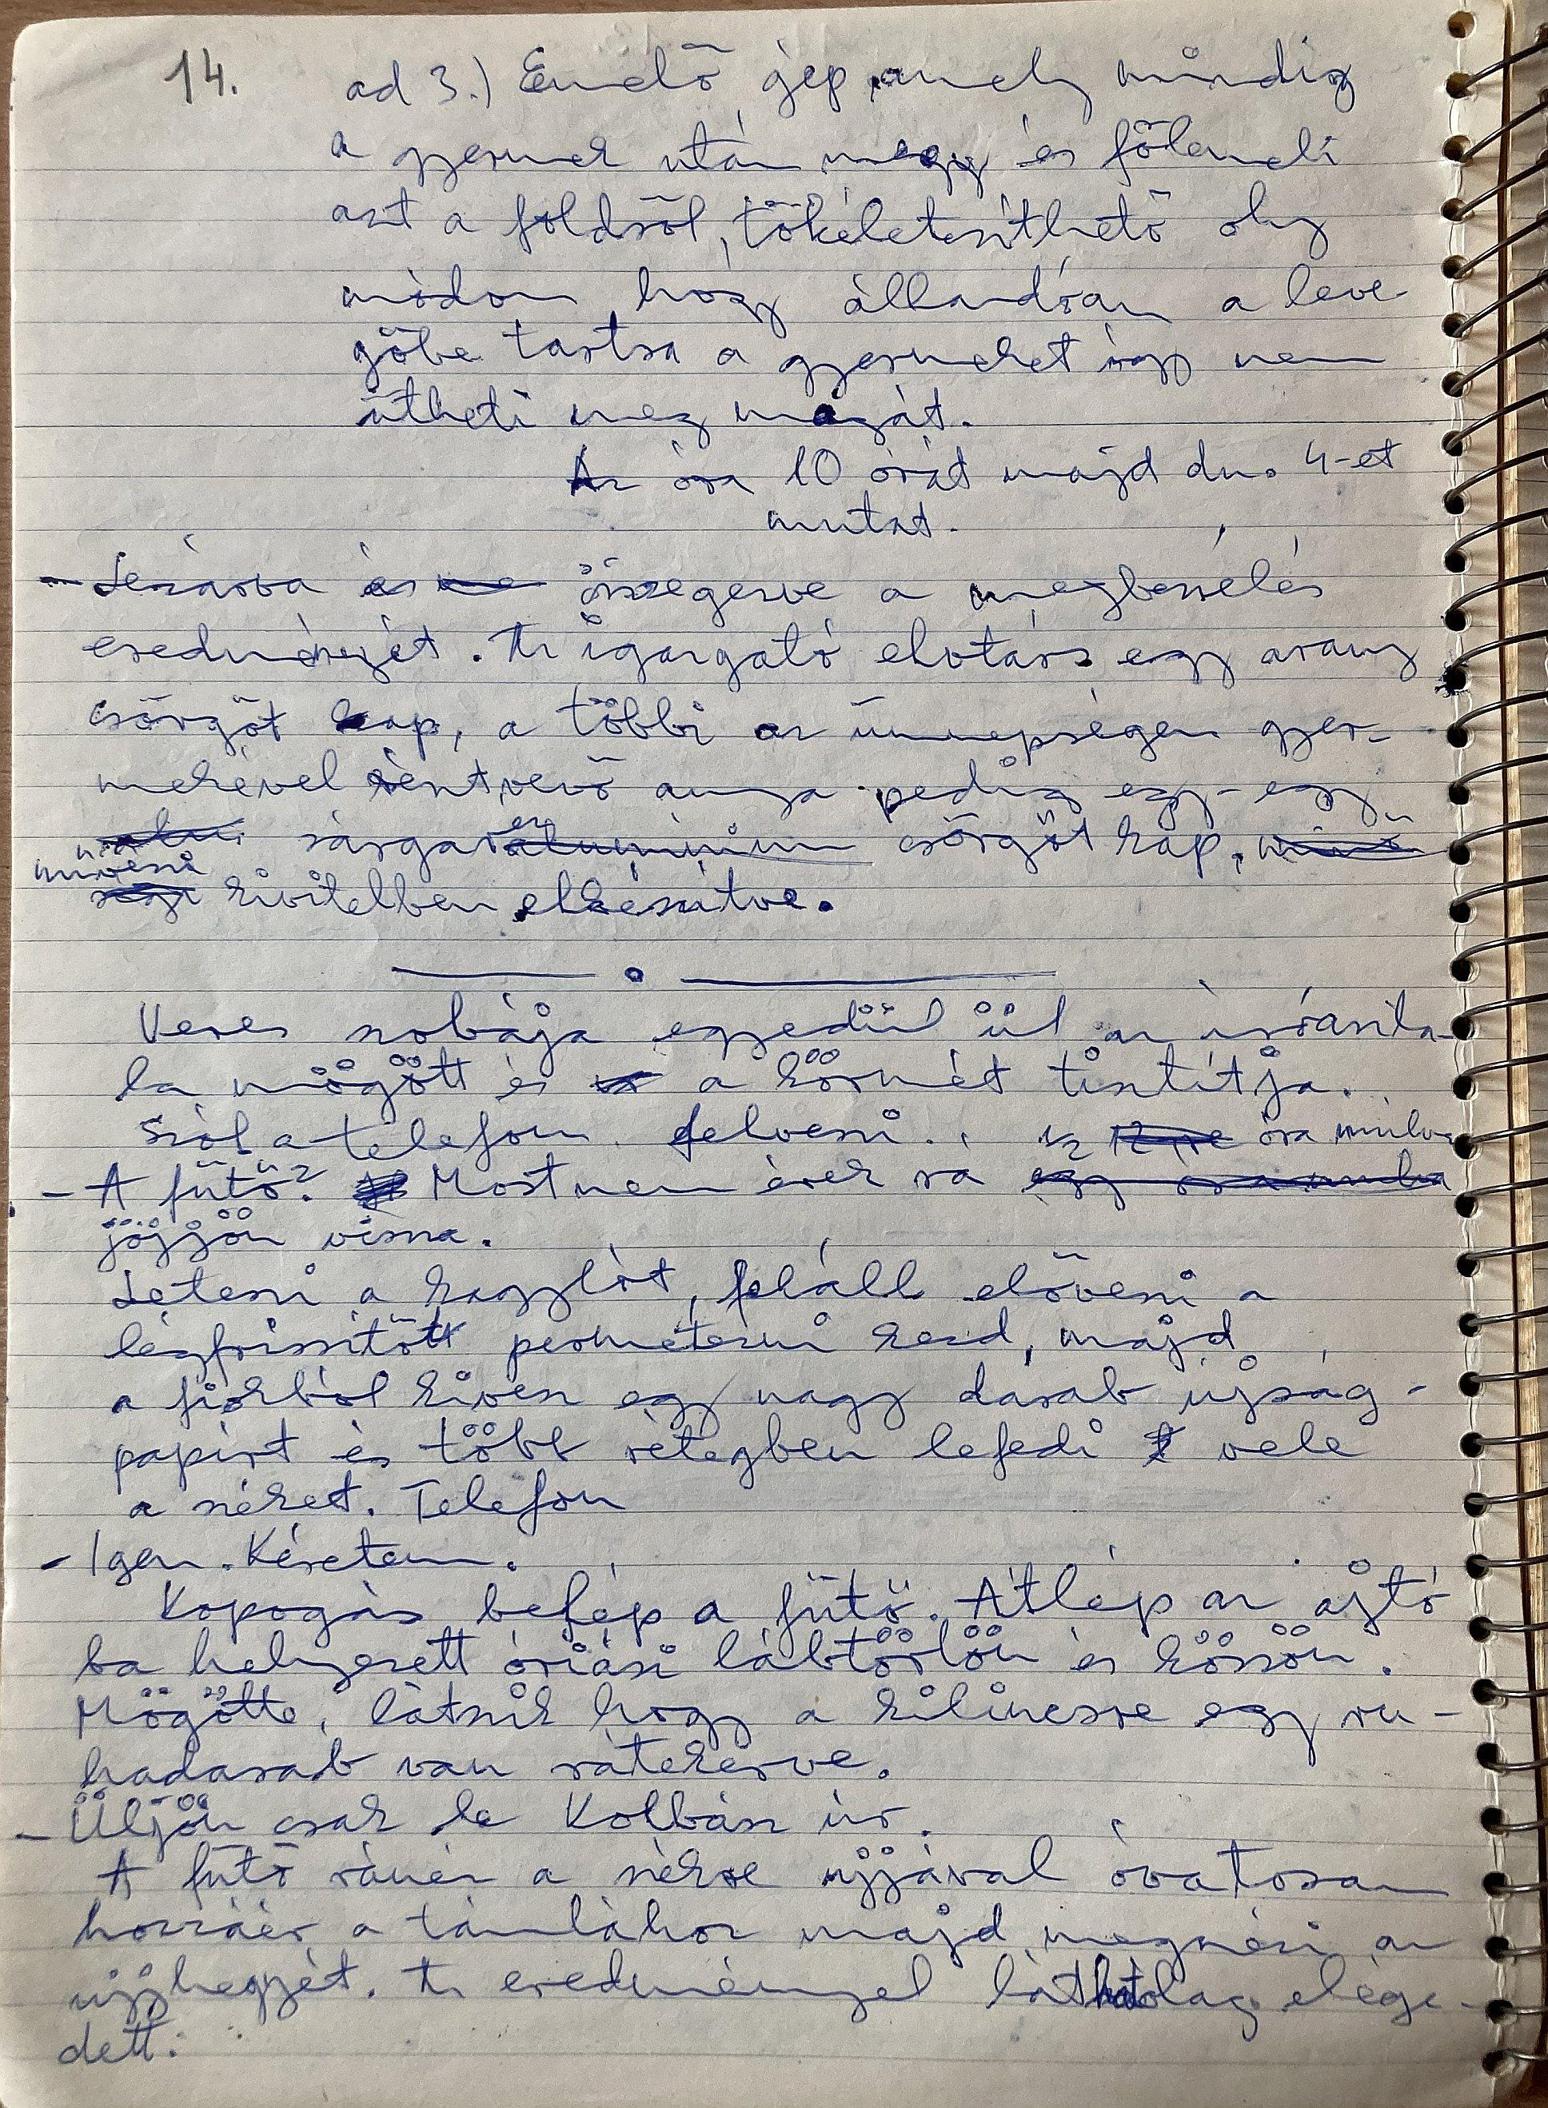 14. ad 3.) Emelő gép, amely mindig
a gyermek után megy és fölemeli
azt a földről, tökéletesíthető oly
módon hogy állandóan a leve-
gőbe tartsa a gyermeket így nem
ütheti meg magát.
Az óra 10 órát majd du. 4-et
mutat.
- Lezárva és összegezve a megbeszélés
eredményét. Az igazgató elvtárs egy arany
csörgőt kap, a többi az ünnepségen gyer-
mekével résztvevő anya pedig egy-egy
sárgaréz csörgőt kap,
művészi kivitelben elkészítve.
Veres szobája egyedül ül az íróaszta-
la mögött és a körmét tisztítja.
Szól a telefon. felveszi.
- A fűtő? Most nem érek rá 1/2 óra múlva
jöjjön vissza.
Leteszi a kagylót, feláll előveszi a
légfrissítőt permetezni kezd, majd
a fiókból kivesz egy nagy darab újság-
papírt és több rétegben lefedi vele
a széket. Telefon
- Igen. Kéretem.
Kopogás belép a fűtő. Átlép az ajtó
ba helyezett óriási lábtörlőn és köszön.
Mögötte, látszik hogy a kilincsre egy ru-
hadarab van rátekerve.
- Üljön csak le Kolbász úr.
A fűtő ránéz a székre ujjával óvatosan
hozzáér a támlához majd megnézi az
ujjhegyét. Az eredménnyel láthatólag elége-
dett.